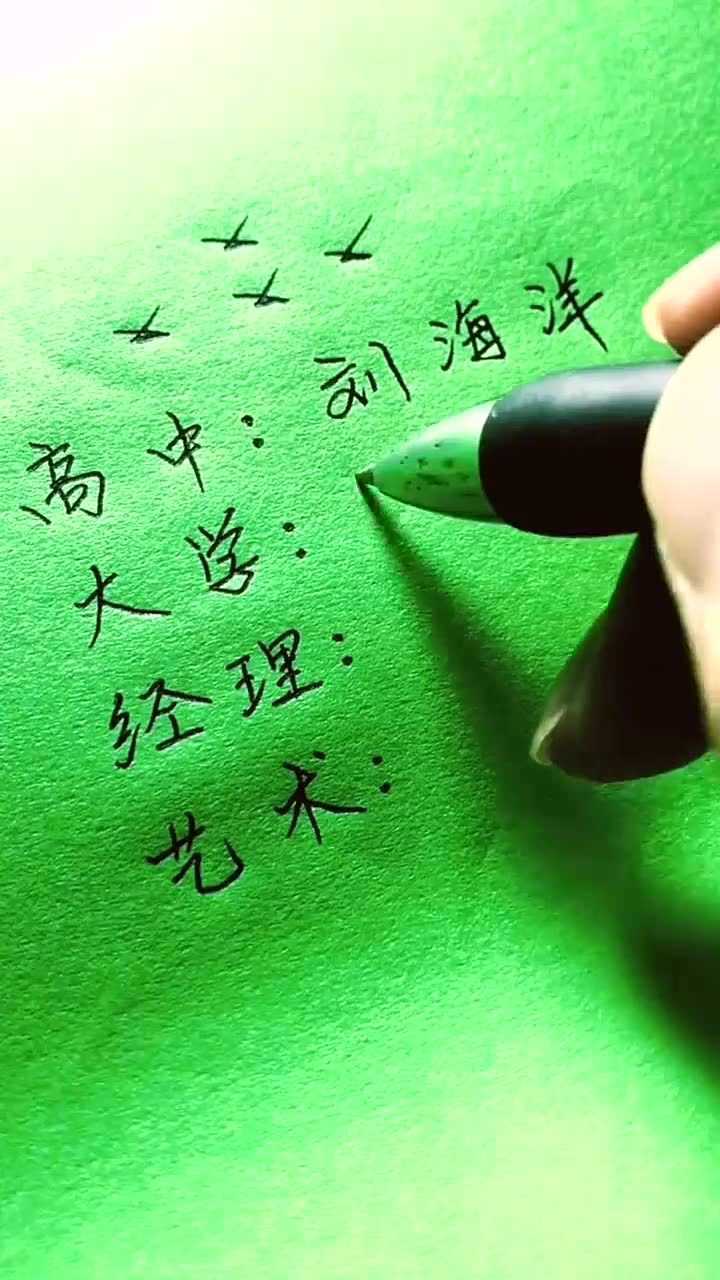 高中:刘海洋
大学:
经理:
艺术: